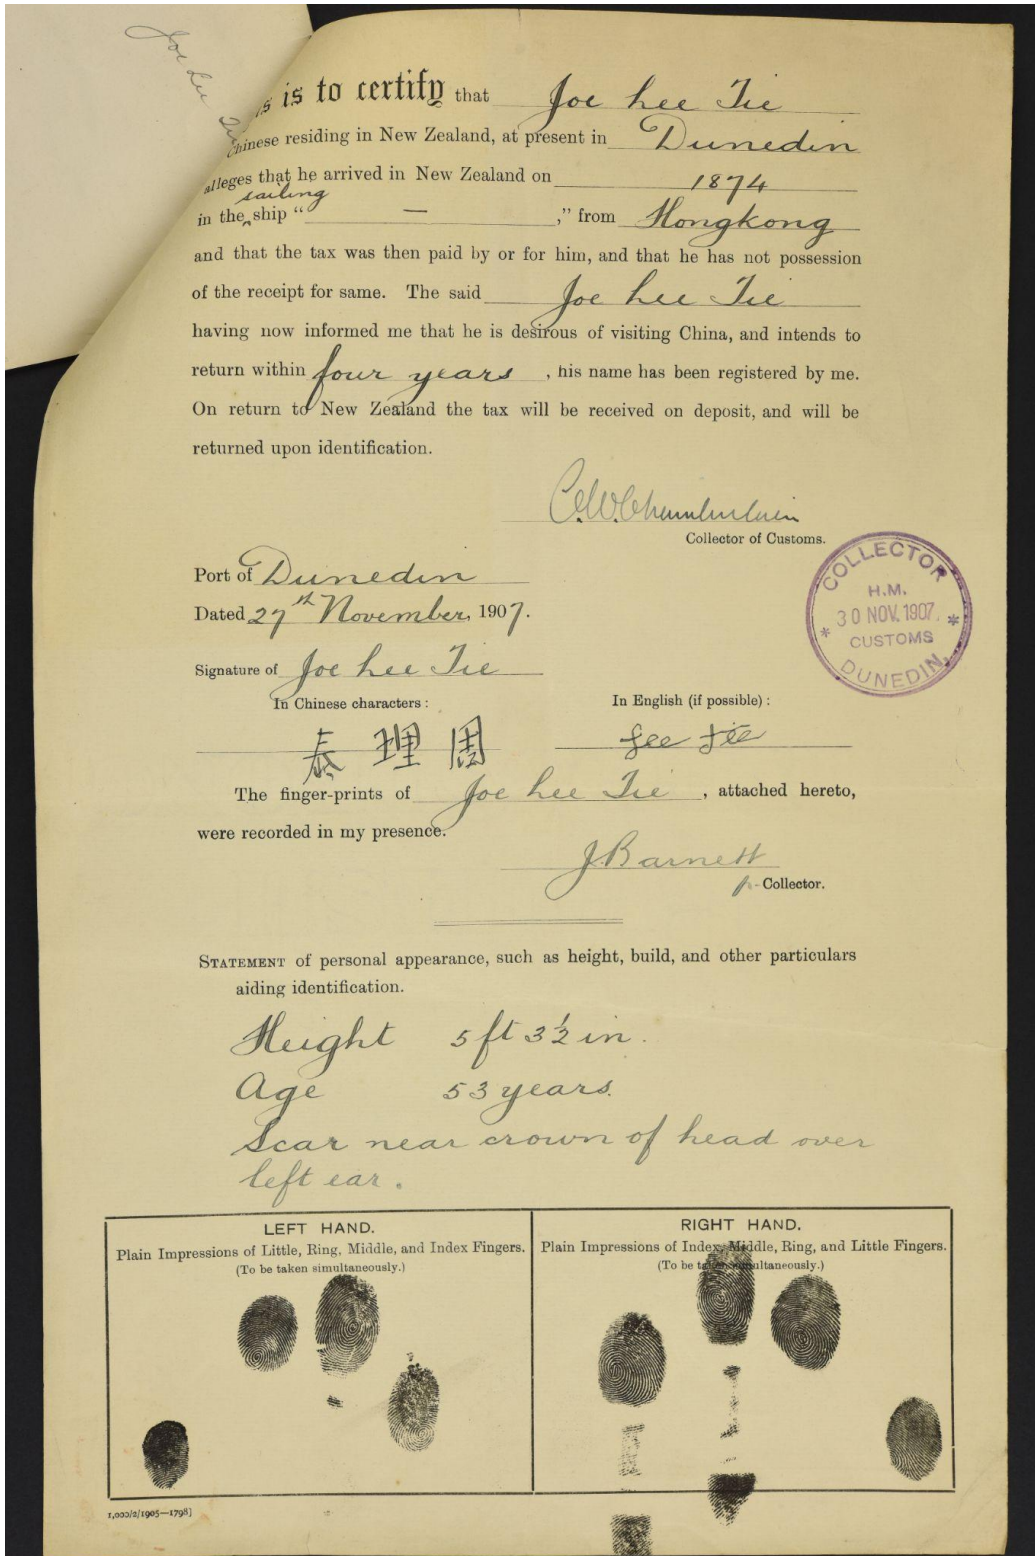 Joe Lee
is to certify that Joe Lee Tie
Chinese residing in New Zealand, at present in Dunedin
alleges that he arrived in New Zealand on 1874
sailing
in the ^ ship “ — ,” from Hongkong
and that the tax was then paid by or for him, and that he has not possession
of the receipt for same. The said Joe Lee Tie
having now informed me that he is desirous of visiting China, and intends to
return within four years , his name has been registered by me.
On return to New Zealand the tax will be received on deposit, and will be
returned upon identification.
C.W. Chamberlain
Collector of Customs.
Port of Dunedin
Dated 27th November, 1907.
COLLECTOR
H.M.
* 30 NOV. 1907 *
CUSTOMS
DUNEDIN
Signature of Joe Lee Tie
In Chinese characters : In English (if possible) :
泰 理 周 Lee Tie
The finger-prints of Joe Lee Tie , attached hereto,
were recorded in my presence.
J. Barnett
p- Collector.
STATEMENT of personal appearance, such as height, build, and other particulars
aiding identification.
Height 5 ft 3½ in.
Age 53 years.
Scar near crown of head over
left ear.
LEFT HAND. RIGHT HAND.
Plain Impressions of Little, Ring, Middle, and Index Fingers. Plain Impressions of Index, Middle, Ring, and Little Fingers.
(To be taken simultaneously.) (To be taken simultaneously.)
1,000/2/1905—1798]